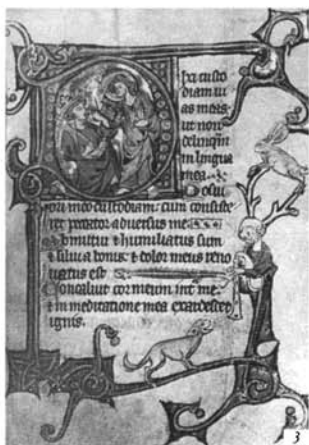 Dixi custo
diam ui
as meas
ut non
delinqm
in lingua
mea.
Posui
ori meo custodiam: cum consiste
ret peccator aduersus me
Obmutui & humiliatus sum
& silui a bonis: & dolor meus reno
uatus est
Concaluit cor meum int me
& in meditatione mea exardescet
ignis.
3